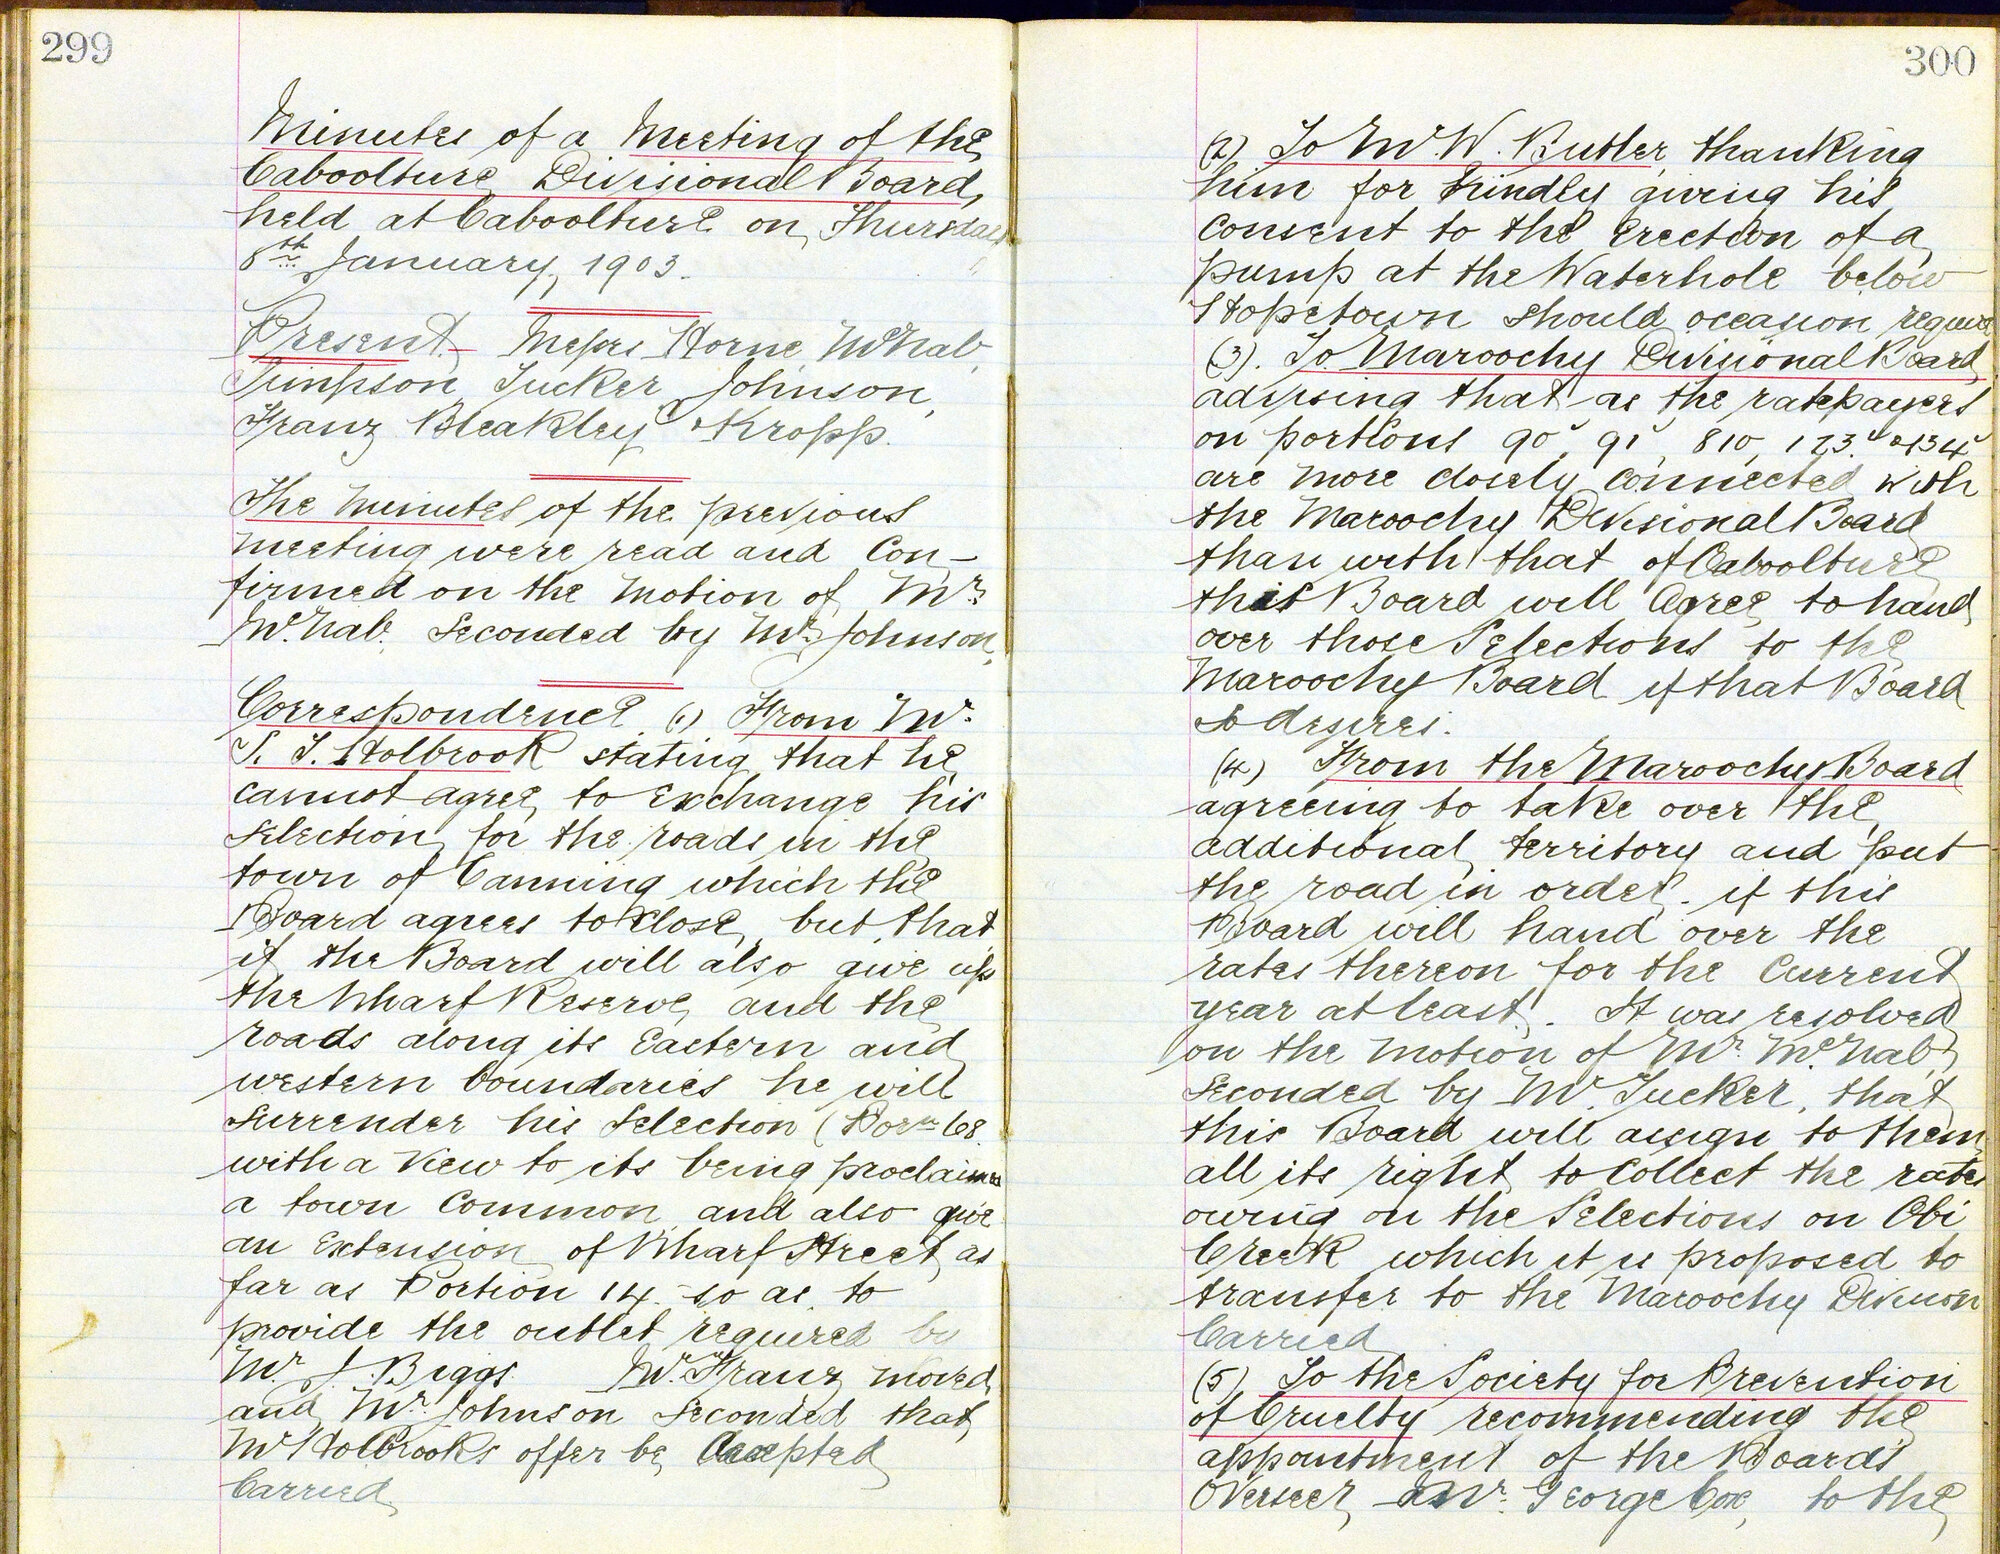 299
Minutes of a Meeting of the
Caboolture Divisional Board,
held at Caboolture on Thursday
8th January, 1903.
Present. Messrs Horne McNab
Simpson Tucker Johnson,
Franz Bleakley & Kropp.
The Minutes of the previous
meeting were read and Con-
firmed on the Motion of Mr.
McNab. Seconded by Mr Johnson.
Correspondence (1) From Mr.
S. T. Holbrook stating that he
cannot agree to Exchange his
selection for the roads in the
town of Canning which the
Board agrees to close, but that
if the Board will also give up
the Wharf Reserve, and the
roads along its Eastern and
western boundaries he will
surrender his Selection (Porn 68
with a view to its being proclaimed
a town Common and also give
an Extension of Wharf Street as
far as Portion 14. so as to
provide the outlet required by
Mr. J. Biggs. Mr. Franz moved
and Mr. Johnson seconded that
Mr Holbrooks offer be Accepted
Carried
300
(2) To Mr. W. Butler thanking
him for kindly giving his
consent to the Erection of a
pump at the Waterhole below
Hopetown should occasion require
(3). To Maroochy Divisional Board
advising that as the ratepayers
on portions 90v 91v, 810, 123. & 134v
are more closely connected with
the Maroochy Divisional Board
than with that of Caboolture
this Board will Agree to hand
over those Selections to the
Maroochy Board if that Board
so desires.
(4) From the Maroochy Board
agreeing to take over the
additional territory and put
the road in order. if this
Board will hand over the
rates thereon for the Current
year at least. It was resolved
on the motion of Mr. McNab,
Seconded by Mr. Tucker, that
this Board will assign to them
all its right to Collect the rates
owing on the Selections on Obi
Creek which it is proposed to
transfer to the Maroochy Division
Carried
(5) To the Society for Prevention
of Cruelty recommending the
appointment of the Boards
Overseer Mr. George Cox, to the